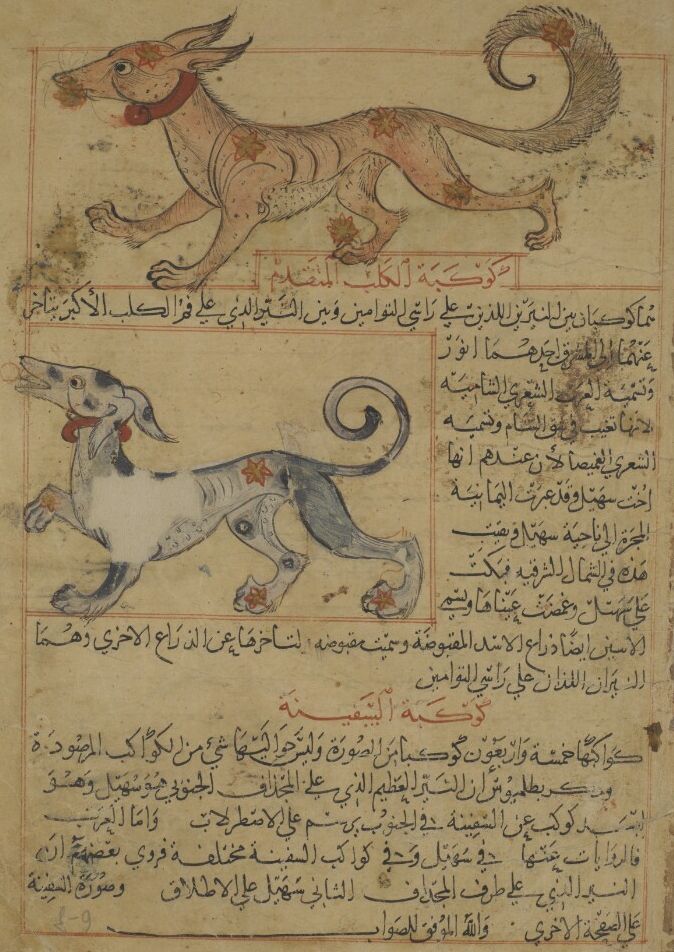 كوكبة الكلب المتقدم
هما كوكبان بين النيرين اللذين على راسي التوامين وبين النير الذي على فم الكلب الأكبر يتاخر
عنهما الى المشرق احدهما انور
وتسميه العرب الشعري الشاميه
لانها تغيب في شق الشام وتسميه
الشعري الغميصا لأن عندهم انها
اخت سهيل وقد عبرت اليمانية
المجرة الى ناحية سهيل وبقيت
هذه في الشمال الشرقيه فبكت
على سهيل وغمصت عيناها ويسم
الاسين ايضا ذراع الاسد المقبوضة وسميت مقبوضه لتاخرها عن الذراع الاخري وهما
النيران اللذان على راسي التوامين
كوكبة السفينة
كواكبها خمسة واربعون كوكبا من الصورة وليس حواليها شيء من الكواكب المرصودة
وذكر بطلميوس أن النير العظيم الذي على المجذاف الجنوبي هو سهيل وهو
ابعد كوكب عن السفينة في الجنوب يرسم على الاصطرلاب واما العرب
فالروايات عنها في سهيل وفي كواكب السفينة مختلفة فروي بعضهم أن
النير الذي على طرف المجذاف الثاني سهيل على الاطلاق وصورة السفينة
على الصفحة الاخري والله الموفق للصواب